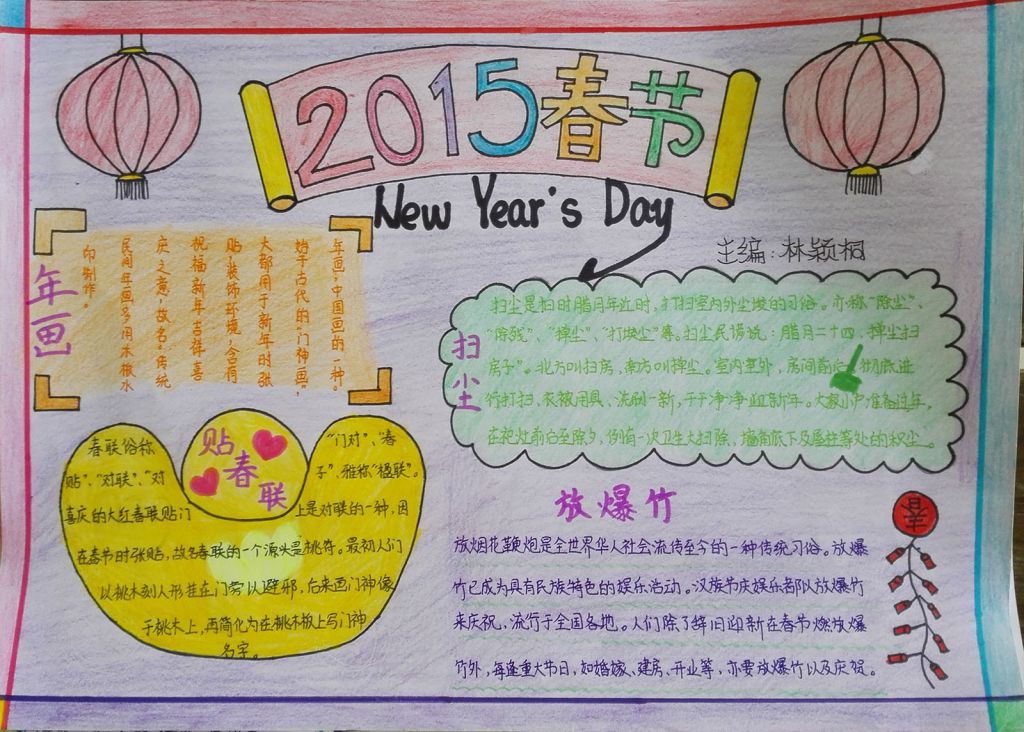 2015春节
New Year's Day
主编：林颖桐
年画
年画，中国画的一种。
始于古代的“门神画”，
大都用于新年时张
贴，装饰环境，含有
祝福新年吉祥喜
庆之意，故名。传统
民间年画多用木板水
印制作。
扫尘
扫尘是扫时腊月年近时，打扫室内外尘垢的习俗。亦称“除尘”、
“除残”、“掸尘”、“打埃尘”等。扫尘民谚说：腊月二十四，掸尘扫
房子”。北方叫扫房，南方叫掸尘。室内室外，房间前后，彻底进
行打扫，衣被用具、洗刷一新，干干净净迎新年。大家小户准备过年，
在祀灶前后至除夕，例有一次卫生大扫除，墙角底下及屋柱等处的积尘
贴春联
春联俗称 “门对”、“春
贴”、“对联”、“对 子”，雅称“楹联”。
喜庆的大红春联贴门 上是对联的一种，因
在春节时张贴，故名春联的一个源头是桃符。最初人们
以桃木刻人形挂在门旁以避邪，后来画门神像
于桃木上，再简化为在桃木板上写门神
名字。
放爆竹
放烟花鞭炮是全世界华人社会流传至今的一种传统习俗。放爆
竹已成为具有民族特色的娱乐活动。汉族节庆娱乐都以放爆竹
来庆祝，流行于全国各地。人们除了辞旧迎新在春节燃放爆
竹外，每逢重大节日，如婚嫁、建房、开业等，亦要放爆竹以及庆贺。
春